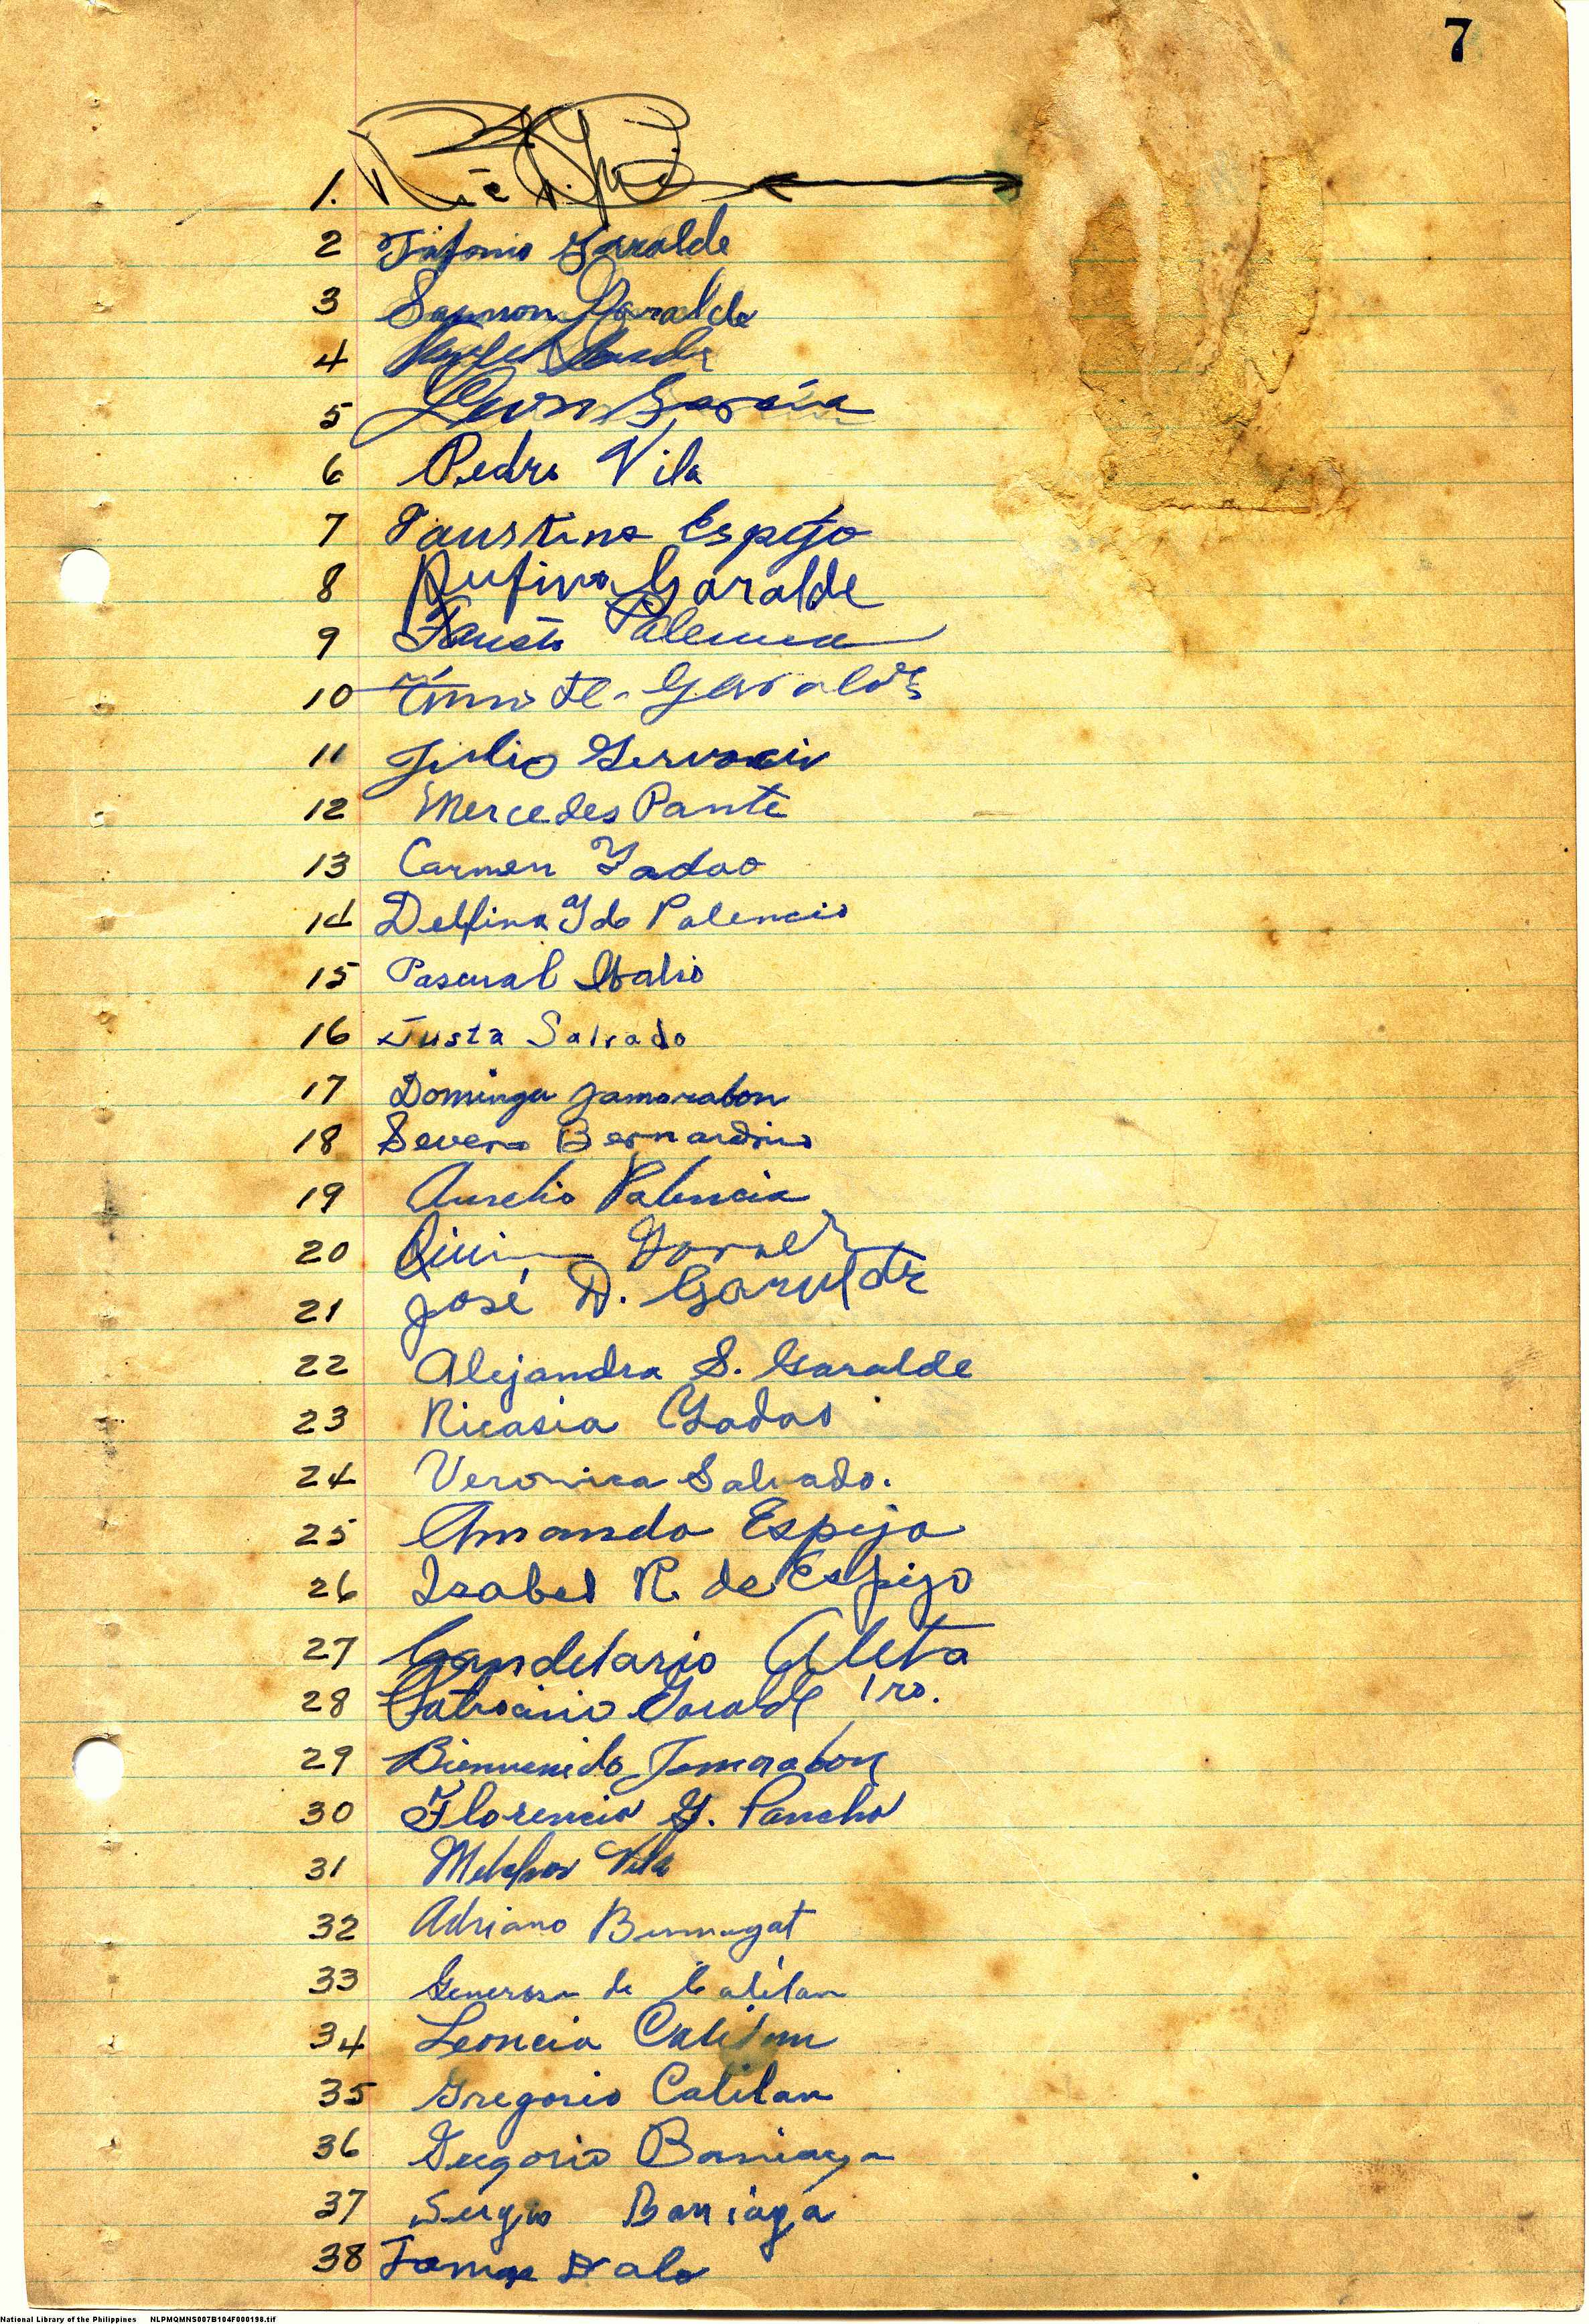 7
1.
2 Garalde
3 Garalde
4
5 Leon Garcia
6 Pedro Vila
7 Faustino Espejo
8 Rufino Garalde
9 Fausto Palencia
10
11 Julio
12 Mercedes Pante
13 Carmen Yadao
14 Delfina Ydo Palencia
15 Pascual
16 Justa Salvado
17 Dominga Jamorabon
18 Severo Bernardino
19 Aurelio Palencia
20
21 José D. Garalde
22 Alejandra S. Garalde
23 Nicasia Yadao
24 Veronica Salvado.
25 Amando Espejo
26 Isabel R. de Espejo
27 Candelario Aleta
28 Patrocinio Garalde 1ro.
29 Bienvenido Jamorabon
30 Florencia G. Pancho
31 Melchor Vila
32 Adriano Bumagat
33 Generosa de Catilan
34 Leoncia Catilan
35 Gregorio Catilan
36 Gregorio Baniaga
37 Sergio Baniaga
38
National Library of the Philippines NLPMQMNS007B104F000198.tif